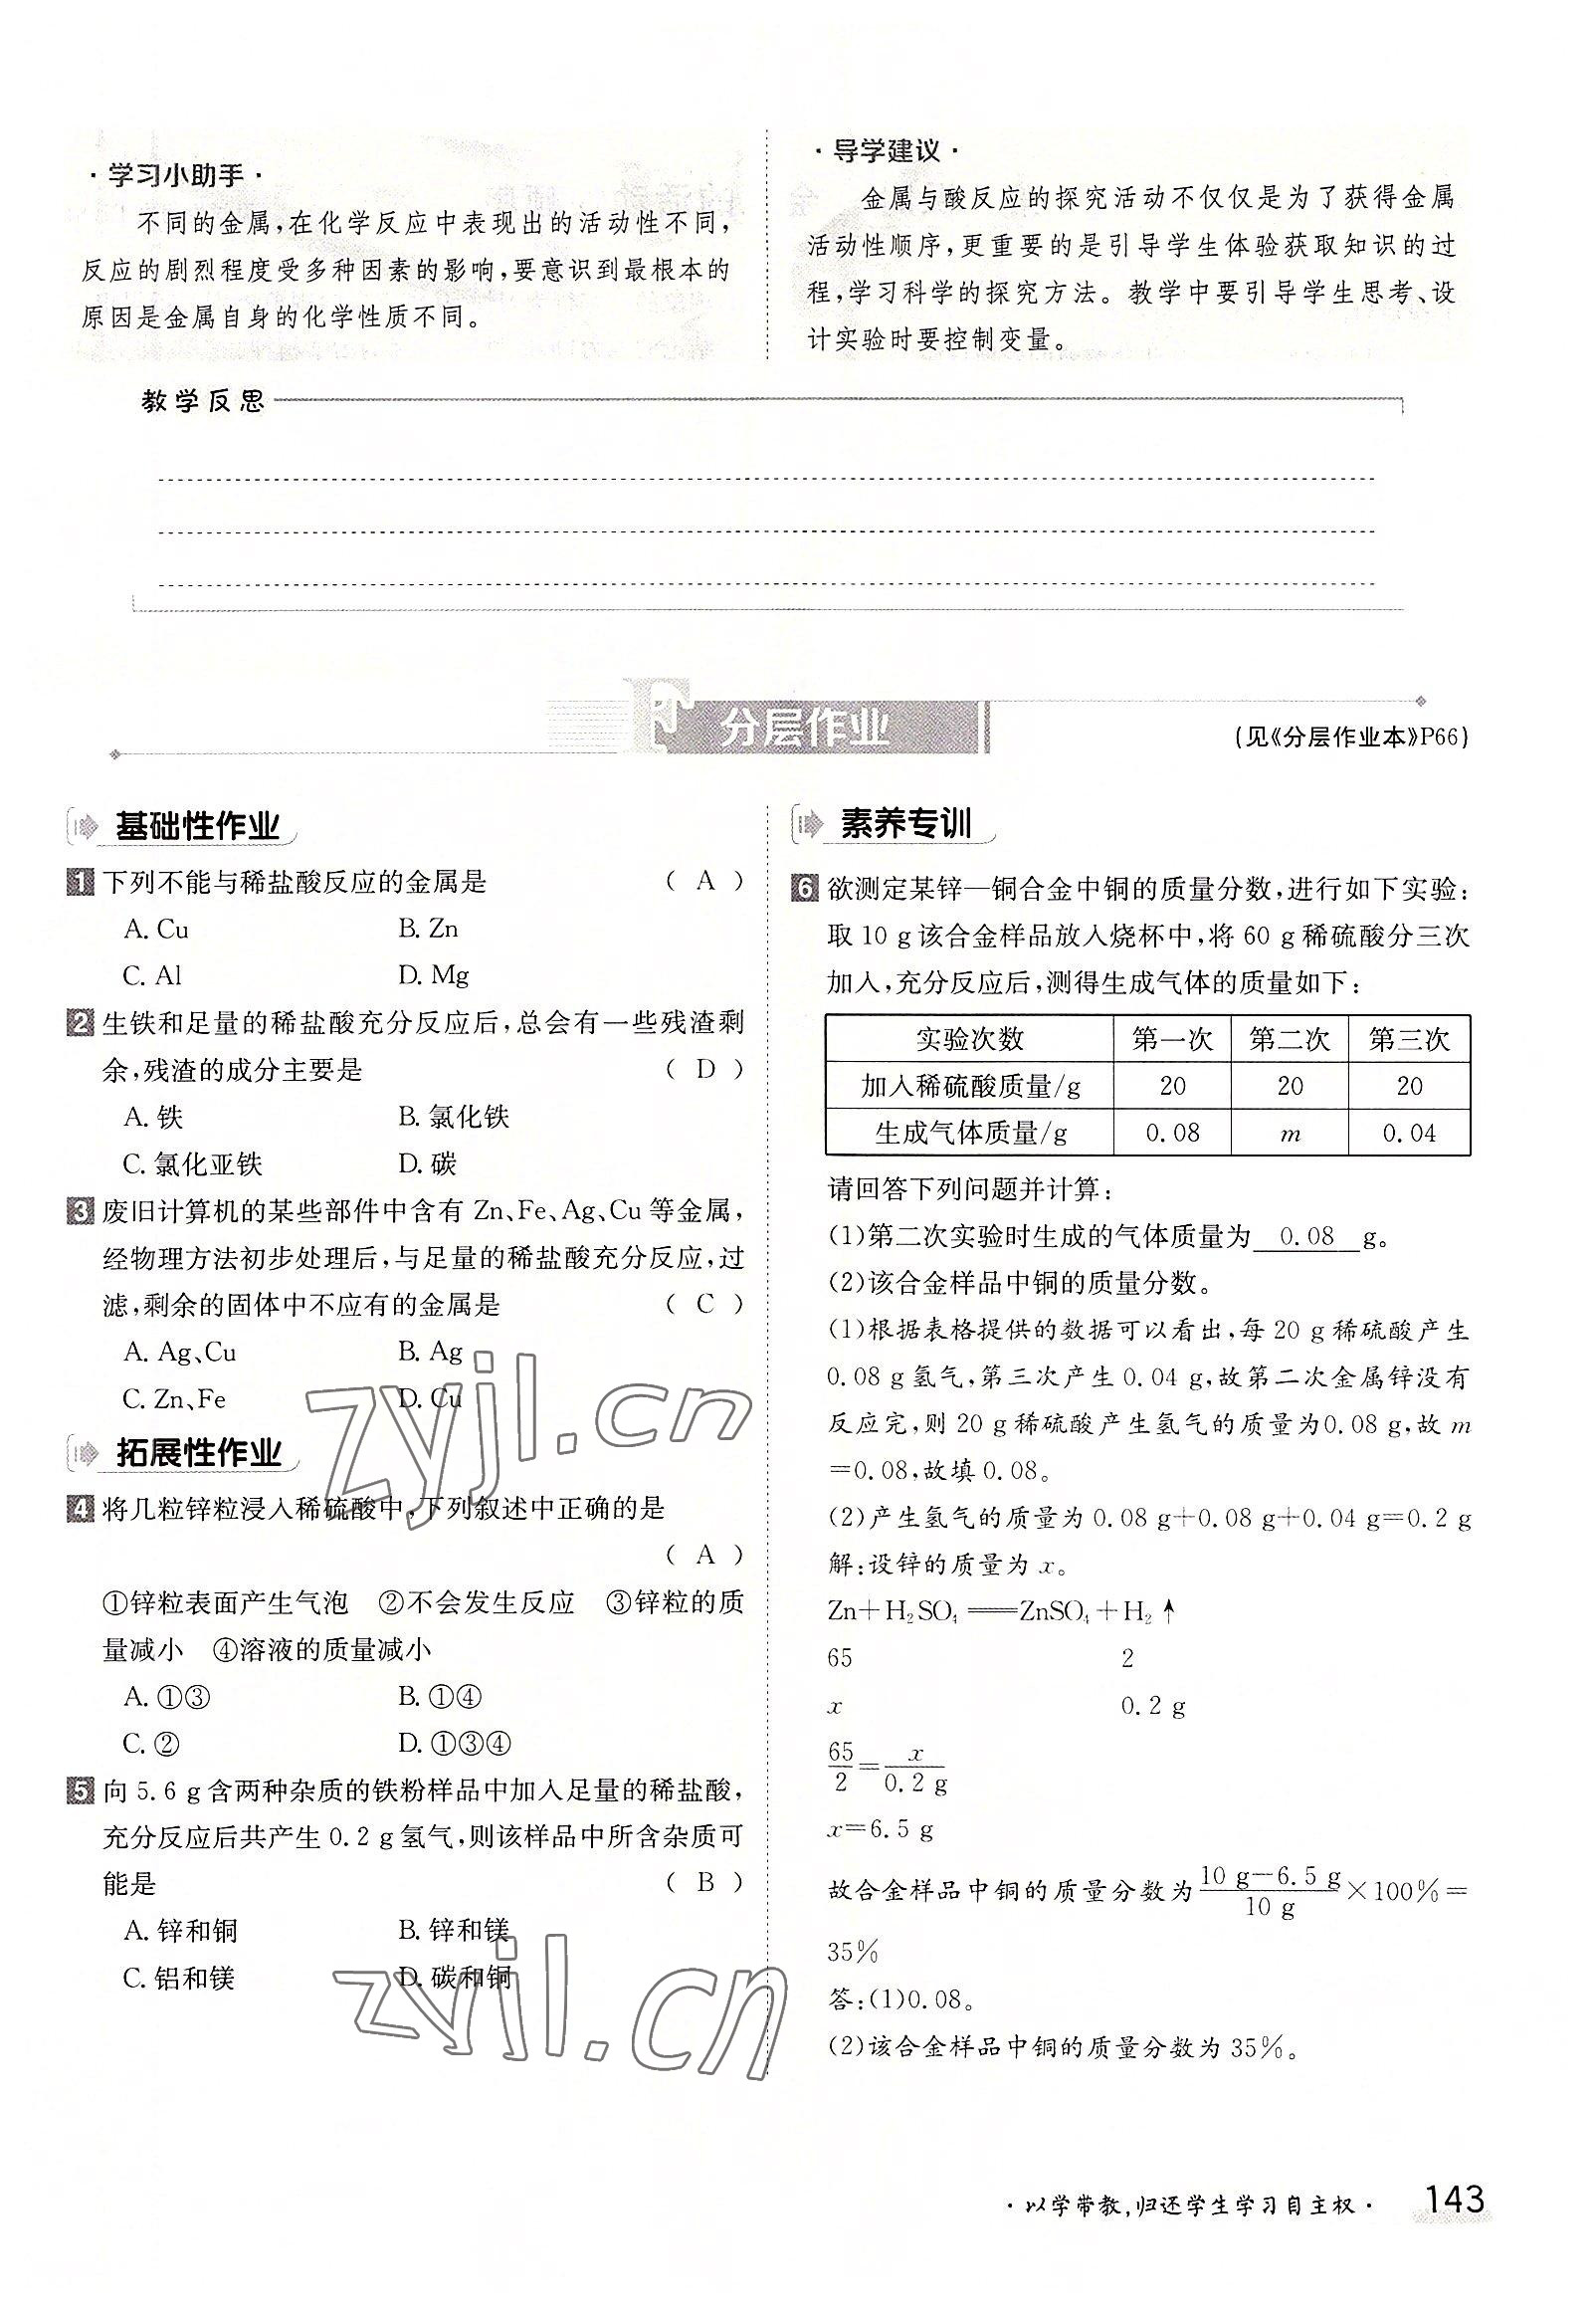 ·学习小助手·
不同的金属,在化学反应中表现出的活动性不同,
反应的剧烈程度受多种因素的影响,要意识到最根本的
原因是金属自身的化学性质不同。
·导学建议·
金属与酸反应的探究活动不仅仅是为了获得金属
活动性顺序,更重要的是引导学生体验获取知识的过
程,学习科学的探究方法。教学中要引导学生思考、设
计实验时要控制变量。
教学反思
分层作业
(见《分层作业本》P66)
基础性作业
1 下列不能与稀盐酸反应的金属是 ( A )
A. Cu B. Zn
C. Al D. Mg
2 生铁和足量的稀盐酸充分反应后,总会有一些残渣剩
余,残渣的成分主要是 ( D )
A. 铁 B. 氯化铁
C. 氯化亚铁 D. 碳
3 废旧计算机的某些部件中含有 Zn、Fe、Ag、Cu 等金属,
经物理方法初步处理后,与足量的稀盐酸充分反应,过
滤,剩余的固体中不应有的金属是 ( C )
A. Ag、Cu B. Ag
C. Zn、Fe D. Cu
拓展性作业
4 将几粒锌粒浸入稀硫酸中,下列叙述中正确的是
( A )
①锌粒表面产生气泡 ②不会发生反应 ③锌粒的质
量减小 ④溶液的质量减小
A. ①③ B. ①④
C. ② D. ①③④
5 向 5.6 g 含两种杂质的铁粉样品中加入足量的稀盐酸,
充分反应后共产生 0.2 g 氢气,则该样品中所含杂质可
能是 ( B )
A. 锌和铜 B. 锌和镁
C. 铝和镁 D. 碳和铜
素养专训
6 欲测定某锌—铜合金中铜的质量分数,进行如下实验:
取 10 g 该合金样品放入烧杯中,将 60 g 稀硫酸分三次
加入,充分反应后,测得生成气体的质量如下:
实验次数 第一次 第二次 第三次
加入稀硫酸质量/g 20 20 20
生成气体质量/g 0.08 m 0.04
请回答下列问题并计算:
(1)第二次实验时生成的气体质量为 0.08 g。
(2)该合金样品中铜的质量分数。
(1)根据表格提供的数据可以看出,每 20 g 稀硫酸产生
0.08 g 氢气,第三次产生 0.04 g,故第二次金属锌没有
反应完,则 20 g 稀硫酸产生氢气的质量为0.08 g,故 m
=0.08,故填 0.08。
(2)产生氢气的质量为 0.08 g+0.08 g+0.04 g=0.2 g
解:设锌的质量为 x。
Zn+H₂SO₄══ZnSO₄+H₂↑
65 2
x 0.2 g
65/2=x/0.2 g
x=6.5 g
故合金样品中铜的质量分数为(10 g-6.5 g)/10 g×100%=
35%
答:(1)0.08。
(2)该合金样品中铜的质量分数为 35%。
zyjl.cn
zyjl.cn
·以学带教,归还学生学习自主权· 143